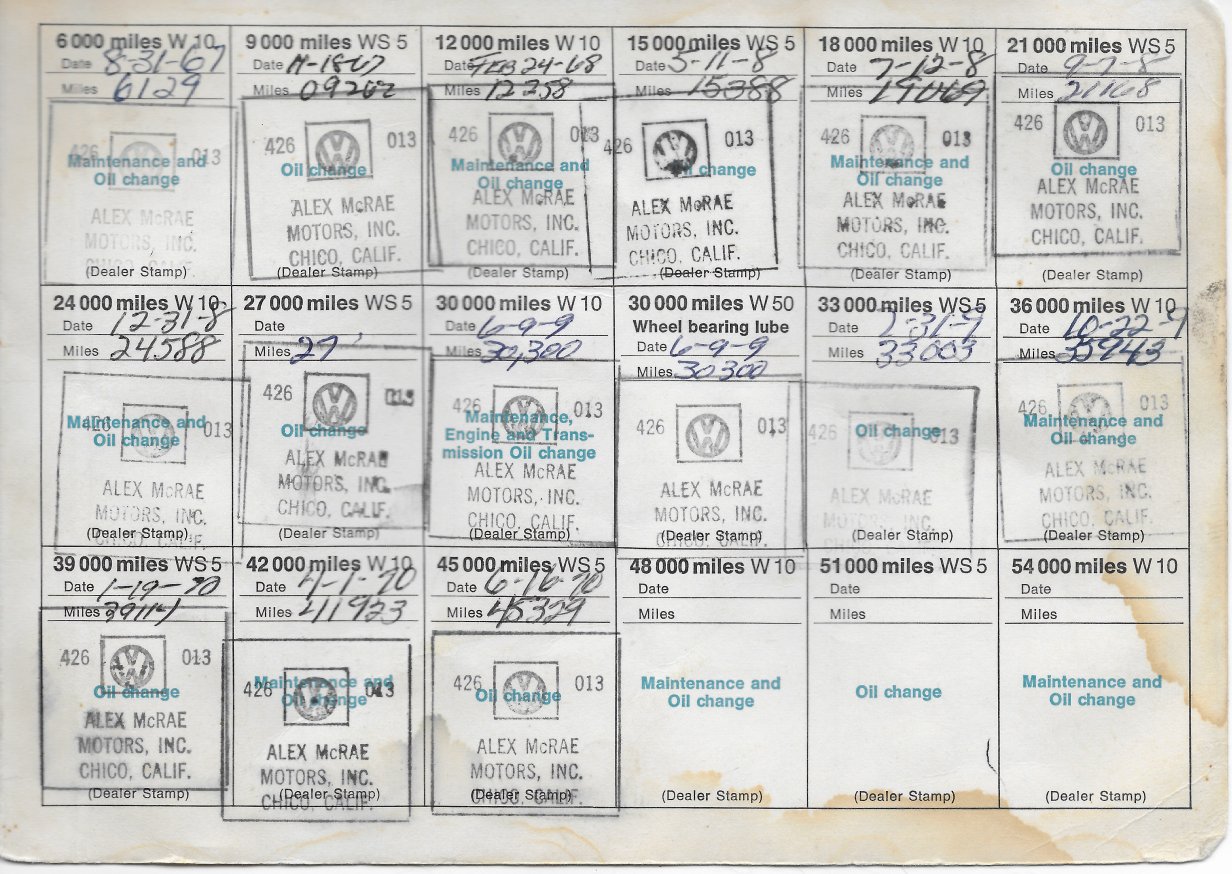 6 000 miles W 10
Date 8-31-67
Miles 6129
426 013
Maintenance and
Oil change
ALEX McRAE
MOTORS, INC.
CHICO, CALIF.
(Dealer Stamp)
9 000 miles WS 5
Date 11-18-67
Miles 09202
426 013
Oil change
ALEX McRAE
MOTORS, INC.
CHICO, CALIF.
(Dealer Stamp)
12 000 miles W 10
Date FEB 24-68
Miles 12258
426 013
Maintenance and
Oil change
ALEX McRAE
MOTORS, INC.
CHICO, CALIF.
(Dealer Stamp)
15 000 miles WS 5
Date 5-11-8
Miles 15388
426
Oil change
ALEX McRAE
MOTORS, INC.
CHICO, CALIF.
(Dealer Stamp)
18 000 miles W 10
Date 7-12-8
Miles 19069
426 013
Maintenance and
Oil change
ALEX McRAE
MOTORS, INC.
CHICO, CALIF.
(Dealer Stamp)
21 000 miles WS 5
Date 9-7-8
Miles 21168
426 013
Oil change
ALEX McRAE
MOTORS, INC.
CHICO, CALIF.
(Dealer Stamp)
24 000 miles W 10
Date 12-31-8
Miles 24588
426 013
Maintenance and
Oil change
ALEX McRAE
MOTORS, INC.
CHICO, CALIF.
(Dealer Stamp)
27 000 miles WS 5
Date
Miles 27
426 013
Oil change
ALEX McRAE
MOTORS, INC.
CHICO, CALIF.
(Dealer Stamp)
30 000 miles W 10
Date 6-9-9
Miles 30,300
426 013
Maintenance,
Engine and Trans-
mission Oil change
ALEX McRAE
MOTORS, INC.
CHICO, CALIF.
(Dealer Stamp)
30 000 miles W 50
Wheel bearing lube
Date 6-9-9
Miles 30300
426 013
ALEX McRAE
MOTORS, INC.
CHICO, CALIF.
(Dealer Stamp)
33 000 miles WS 5
Date 7-31-9
Miles 33003
426 013
Oil change
ALEX McRAE
MOTORS, INC.
CHICO, CALIF.
(Dealer Stamp)
36 000 miles W 10
Date 10-22-9
Miles 35943
426 013
Maintenance and
Oil change
ALEX McRAE
MOTORS, INC.
CHICO, CALIF.
(Dealer Stamp)
39 000 miles WS 5
Date 1-19-70
Miles
426 013
Oil change
ALEX McRAE
MOTORS, INC.
CHICO, CALIF.
(Dealer Stamp)
42 000 miles W 10
Date 4-1-70
Miles 41923
426 013
Maintenance and
Oil change
ALEX McRAE
MOTORS, INC.
CHICO, CALIF.
(Dealer Stamp)
45 000 miles WS 5
Date 6-16-70
Miles 45329
426 013
Oil change
ALEX McRAE
MOTORS, INC.
CHICO, CALIF.
(Dealer Stamp)
48 000 miles W 10
Date
Miles
Maintenance and
Oil change
(Dealer Stamp)
51 000 miles WS 5
Date
Miles
Oil change
(Dealer Stamp)
54 000 miles W 10
Date
Miles
Maintenance and
Oil change
(Dealer Stamp)